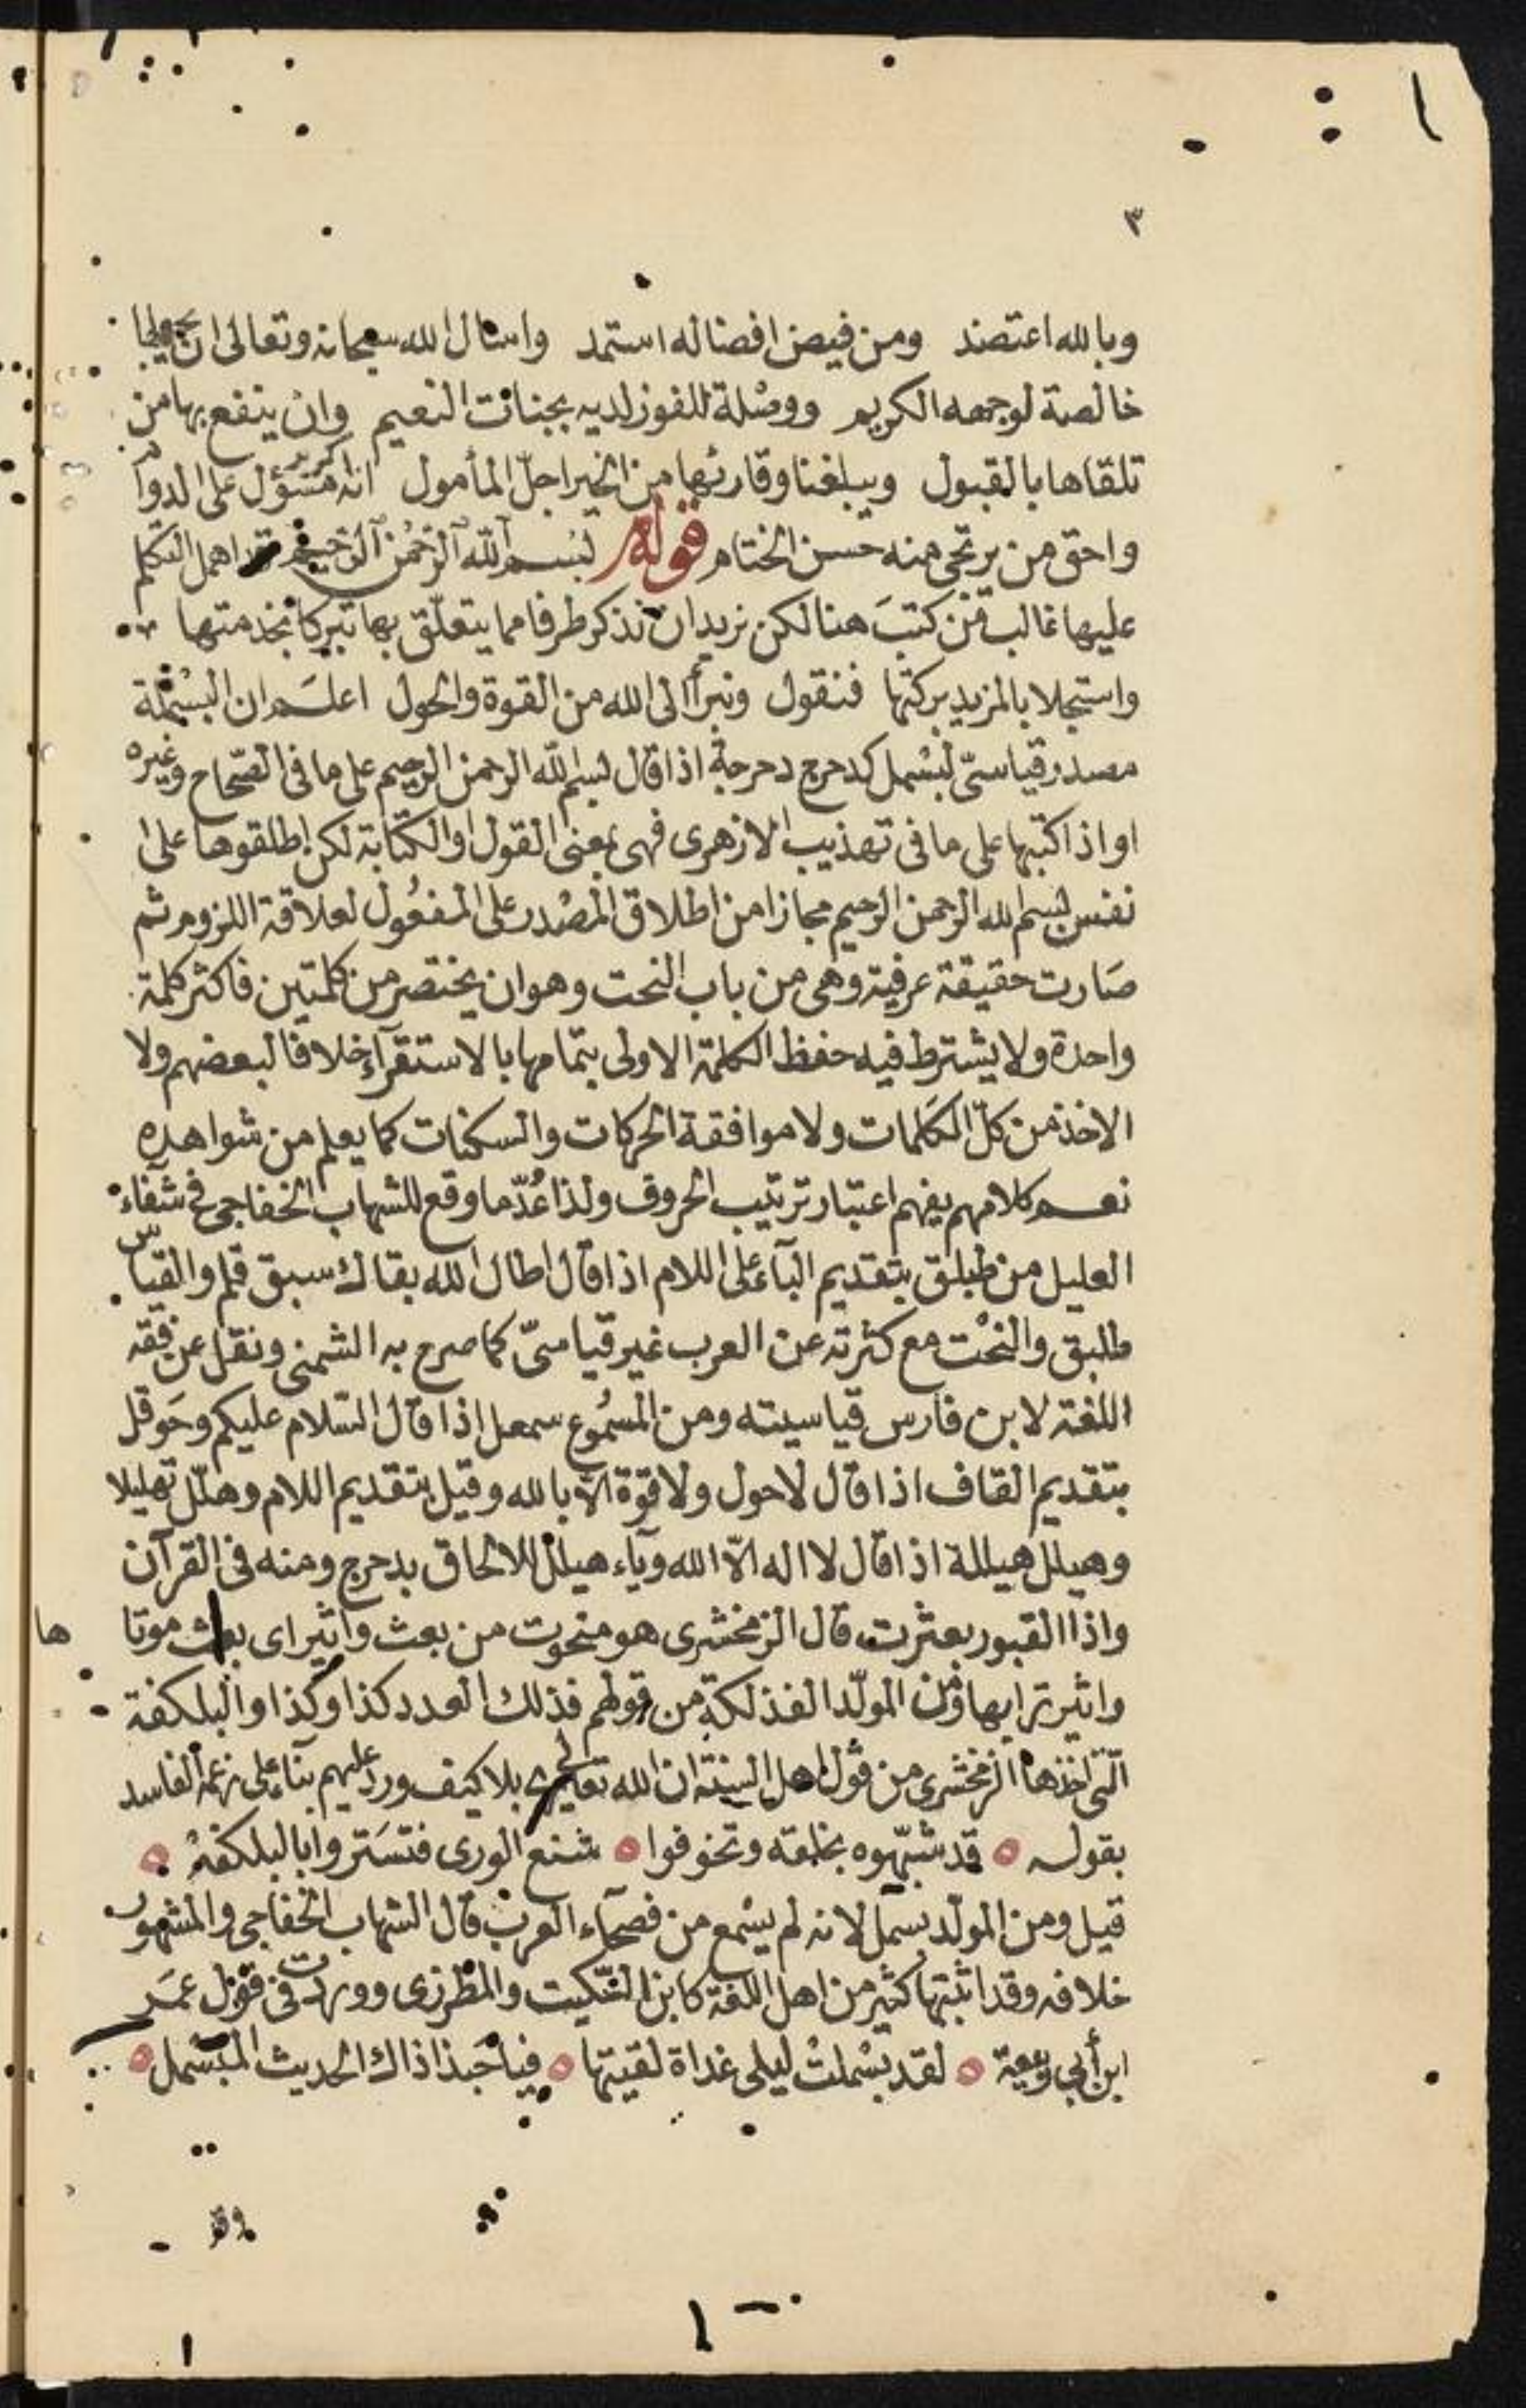 ٣
وبالله اعتضد ومن فيض افضاله استمد واسال الله سبحانه وتعالى ان يجعلها
خالصة لوجهه الكريم ووصْلة للفوز لديه بجنات النعيم وان ينفع بها من
تلقاها بالقبول ويبلغنا وقارئها من الخير اجلّ المأمول انه اكرم مسؤل على الدوام
واحق من يرتجى منه حسن الختام قوله بسم الله الرحمن الرحيم قد اهمل التكلم
عليها غالب من كتبَ هنا لكن نريد ان نذكر طرفا مما يتعلّق بها تبركا بخدمتها
واستجلابا لمزيد بركتها فنقول ونبرأ الى الله من القوة والحول اعلم ان البسْملة
مصدر قياسىّ لبسْمل كدحرج دحرجة اذا قال بسم الله الرحمن الرحيم على ما فى الصّحاح وغيره
او اذا كتبها على ما فى تهذيب الازهرى فهى بمعنى القول او الكتابة لكن اطلقوها على
نفس بسم الله الرحمن الرحيم مجازا من اطلاق المصْدر على المفعُول لعلاقة اللزوم ثم
صَارت حقيقة عرفية وهى من باب النحت وهو ان يختصر من كلمتين فاكثر كلمة
واحدة ولا يشترط فيه حفظ الكلمة الاولى بتمامها بالاستقرآء خلافا لبعضهم ولا
الاخذ من كلّ الكلمات ولا موافقة الحركات والسكنات كما يعلم من شواهده
نعم كلامهم يفهم اعتبار ترتيب الحروف ولذا عُدّ ما وقع للشهاب الخفاجى فى شفآء
العليل من طبلق بتقديم البآء على اللام اذا قال اطال الله بقاك سبق قلم والقياس
طلبق والنحْت مع كثرته عن العرب غير قياسىّ كما صرح به الشمنى ونقل عن فقه
اللغة لابن فارس قياسيته ومن المسْموع سمعل اذا قال السّلام عليكم وحَوقل
بتقديم القاف اذا قال لا حول ولا قوّة الاّ بالله وقيل بتقديم اللام وهلّل تهليلا
وهيلل هيللة اذا قال لا اله الاّ الله ويآء هيلل للالحاق بدحرج ومنه فى القرآن
واذا القبور بعثرت قال الزمخشرى هو منحوت من بعث واثير اى بعث موتاها
واثير ترابها ومن المولّد الفذلكة من قولهم فذلك العدد كذا وكذا والبلكفة
الّتى اخذها الزمخشرى من قول اهل السنة ان الله تعالى يرى بلا كيف ورد عليهم بنآء على زعمه الفاسد
بقوله قد شبّهوه بخلقه وتخوفوا شنع الورى فتسَتروا بالبلكفهْ
قيل ومن المولّد بسمل لانه لم يسْمع من فصحآء العرب قال الشهاب الخفاجى والمشهور
خلافه وقد اثبتها كثير من اهل اللغة كابن السّكيت والمطرزى ووردت فى قول عمَر
ابن أبى ربيعة لقد بسْملتْ ليلى غداة لقيتها فيا حَبذا ذاك الحديث المبَسْمل